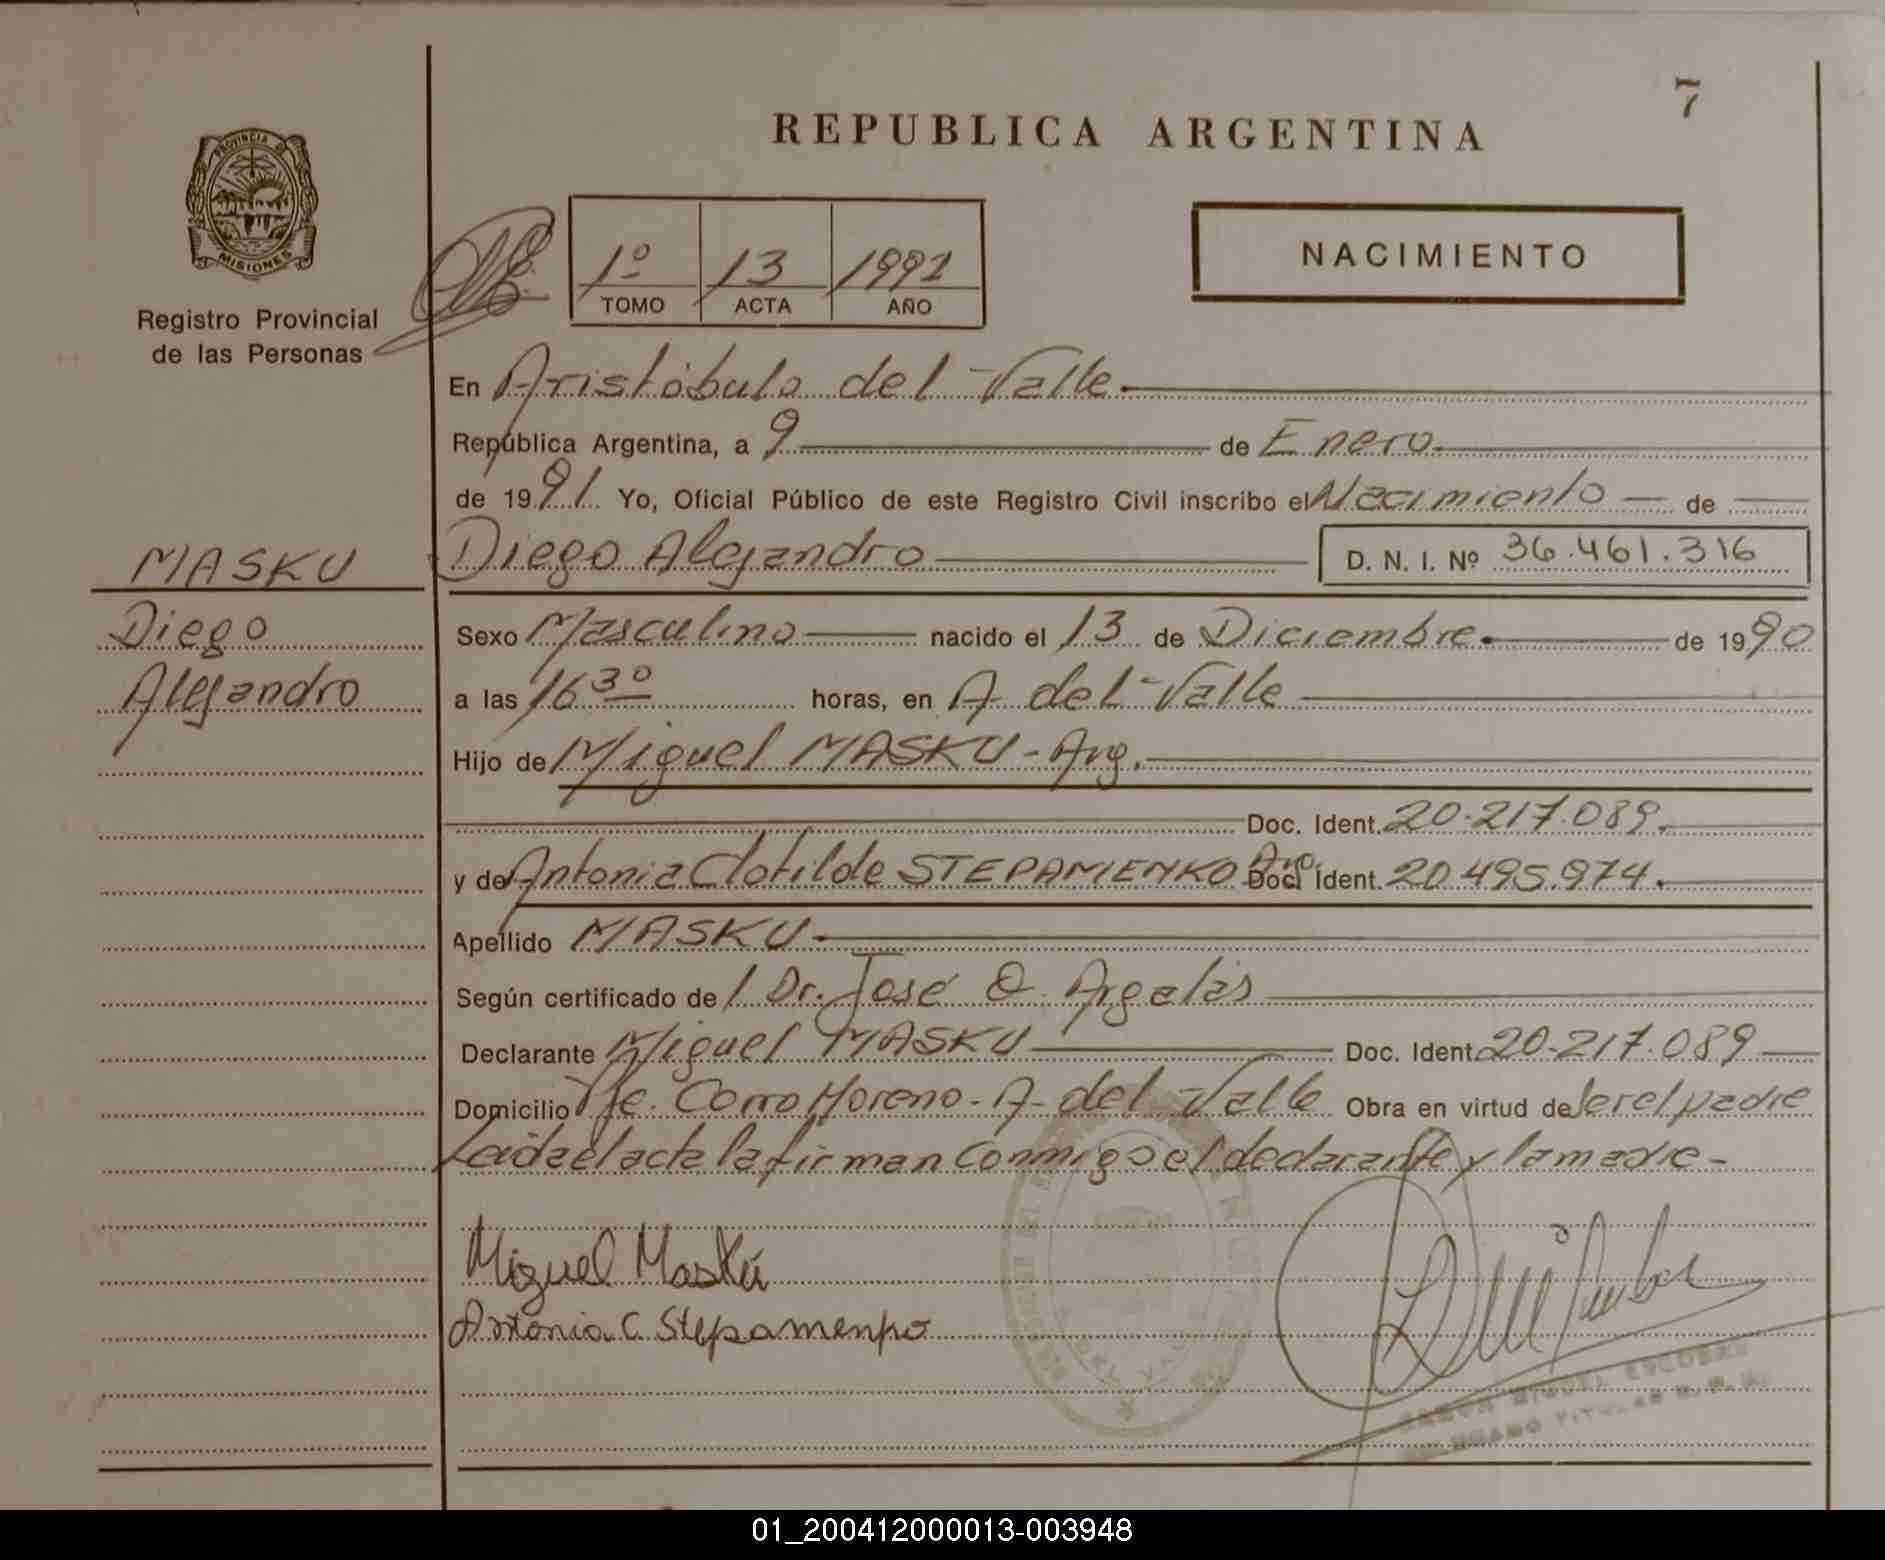 7
REPUBLICA ARGENTINA
PROVINCIA DE
MISIONES
Registro Provincial
de las Personas
1º 13 1991
TOMO ACTA AÑO
NACIMIENTO
En Aristóbulo del Valle.
República Argentina, a 9 de Enero
de 1991 Yo, Oficial Público de este Registro Civil inscribo el Nacimiento de
MASKU
Diego
Alejandro
Diego Alejandro D. N. I. Nº 36.461.316
Sexo Masculino nacido el 13 de Diciembre de 1990
a las 16 30 horas, en A. del Valle
Hijo de Miguel MASKU - Arg.
Doc. Ident. 20.217.089.
y de Antonia Clotilde STEPAMENKO Arg. Doc. Ident. 20.495.974.
Apellido MASKU.
Según certificado de / Dr. José O. Argalas
Declarante Miguel MASKU Doc. Ident. 20.217.089
Domicilio Pje. Corro Moreno - A. del Valle Obra en virtud de ser el padre
Leida el acta la firman conmigo el declarante y la madre -
Miguel Maskú
Antonia C. Stepamenpo
MIGUEL ESCOBAR
TITULAR
01_200412000013-003948